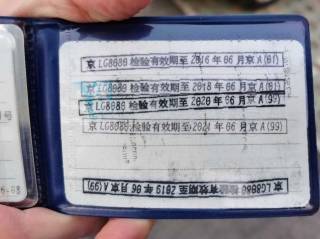 京 LG8080 检验有效期至2016年06月京A(01)
京 LG8080 检验有效期至2018年06月京A(01)
京 LG8080 检验有效期至2020年06月京A(99)
京 LG8080 检验有效期至2021年06月京A(99)
京 LG8080 检验有效期至2019年06月京A(99)
号
-08